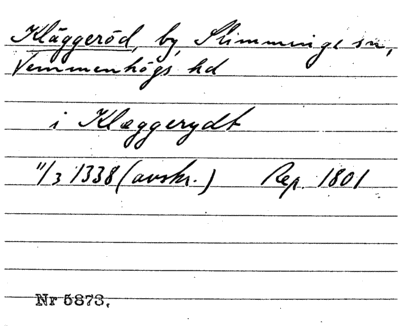 Kläggeröd, by, Slimminge sn,
Vemmenhögs hd
i Klæggerydt
11/3 1338 (avskr.) Rep. 1801
Nr 5873.